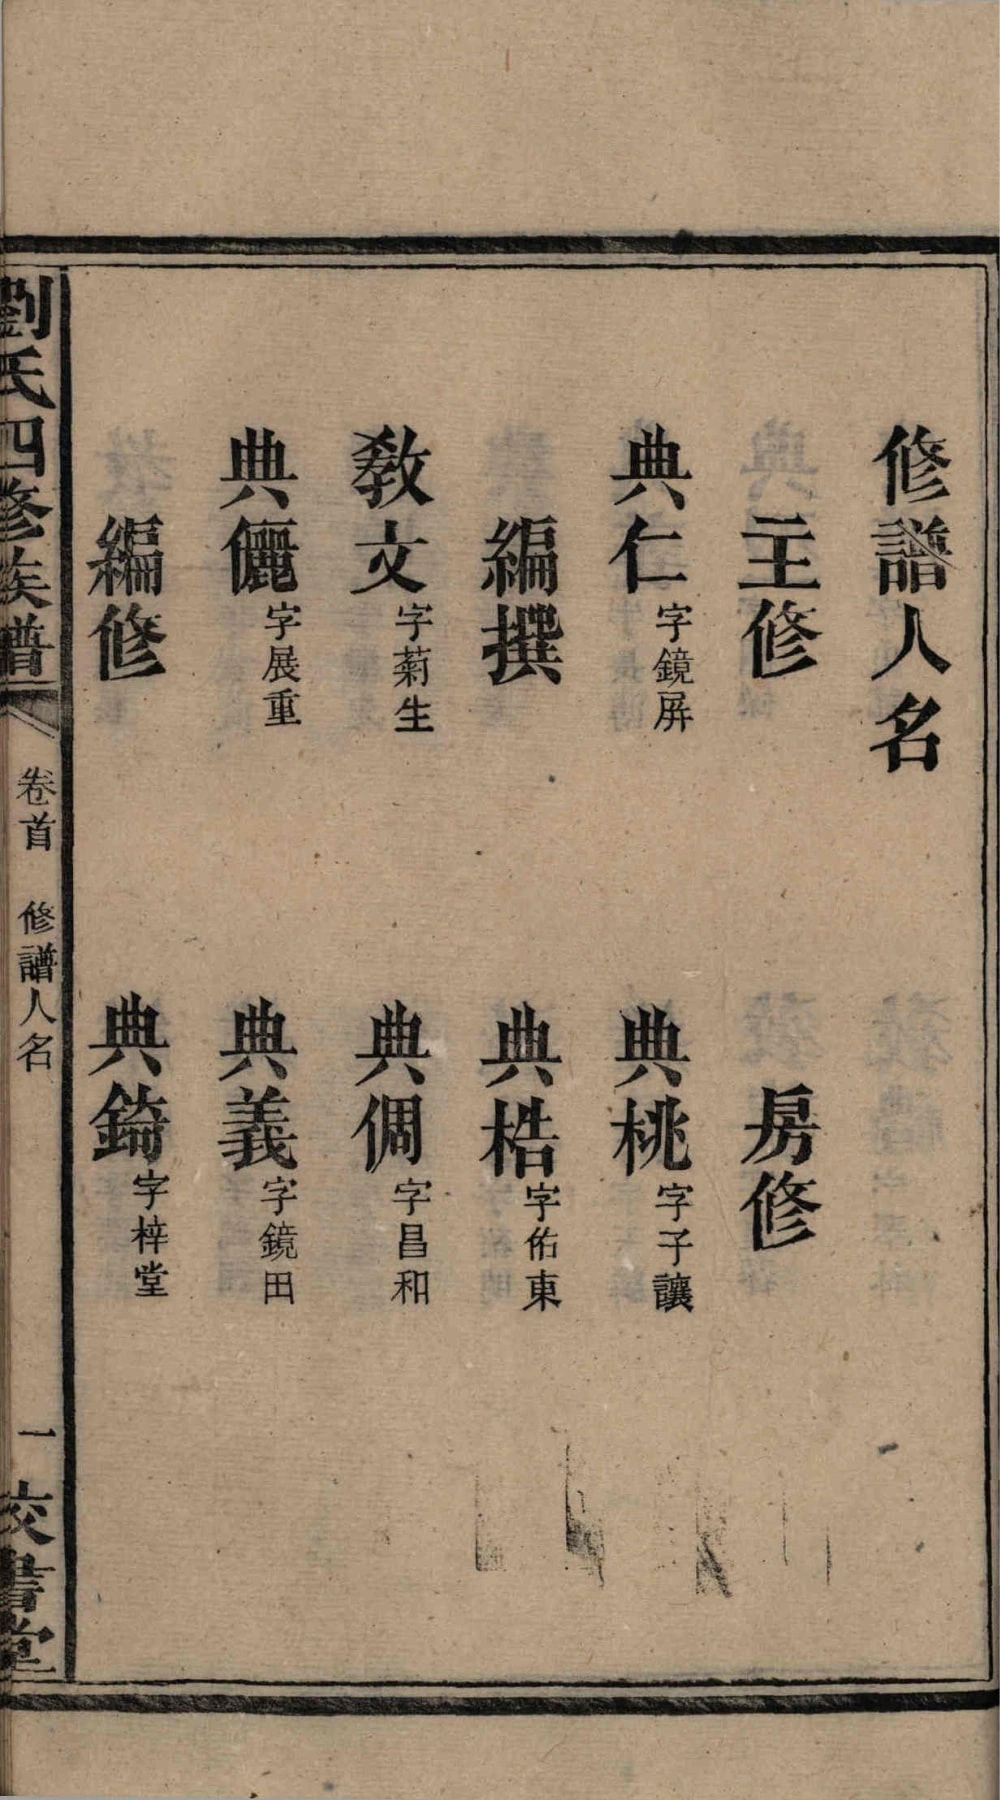 修譜人名
主修
房修
典仁字鏡屏
典桃字子讓
編撰
典梏字佑東
教文字菊生
典倜字昌和
典儷字展重
典義字鏡田
編修
典錡字梓堂
劉氏四修族譜
卷首
修譜人名
一
校書堂